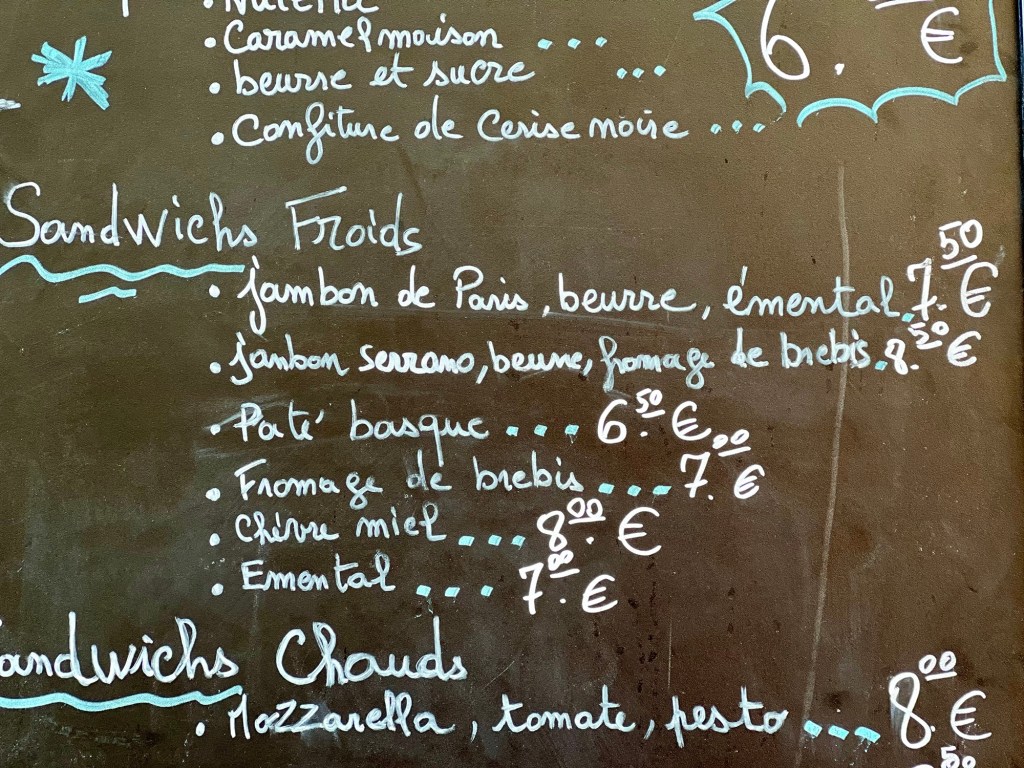 Nutella
• Caramel maison ... 6. €
• beurre et sucre ...
• Confiture de Cerise noire ...
Sandwichs Froids
• jambon de Paris, beurre, émental. 7.50 €
• janbon serrano, beurre, fromage de brebis. 8.50 €
• Paté basque ... 6.50 €
• Fromage de brebis ... 7.00 €
• Chèvre miel ... 8.00 €
• Emental ... 7.00 €
andwichs Chauds
• Mozzarella, tomate, pesto ... 8.00 €
50